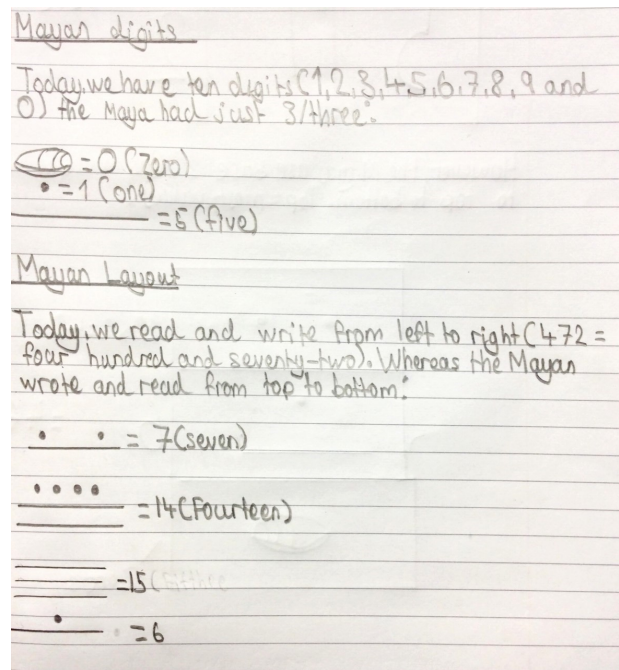 Mayan digits
Today, we have ten digits (1,2,3,4,5,6,7,8,9 and
0) the Maya had just 3/three:
= 0 (Zero)
• = 1 (one)
= 5 (five)
Mayan Layout
Today, we read and write from left to right (472 =
four hundred and seventy-two). Whereas the Mayan
wrote and read from top to bottom:
= 7 (seven)
= 14 (Fourteen)
= 15
= 6